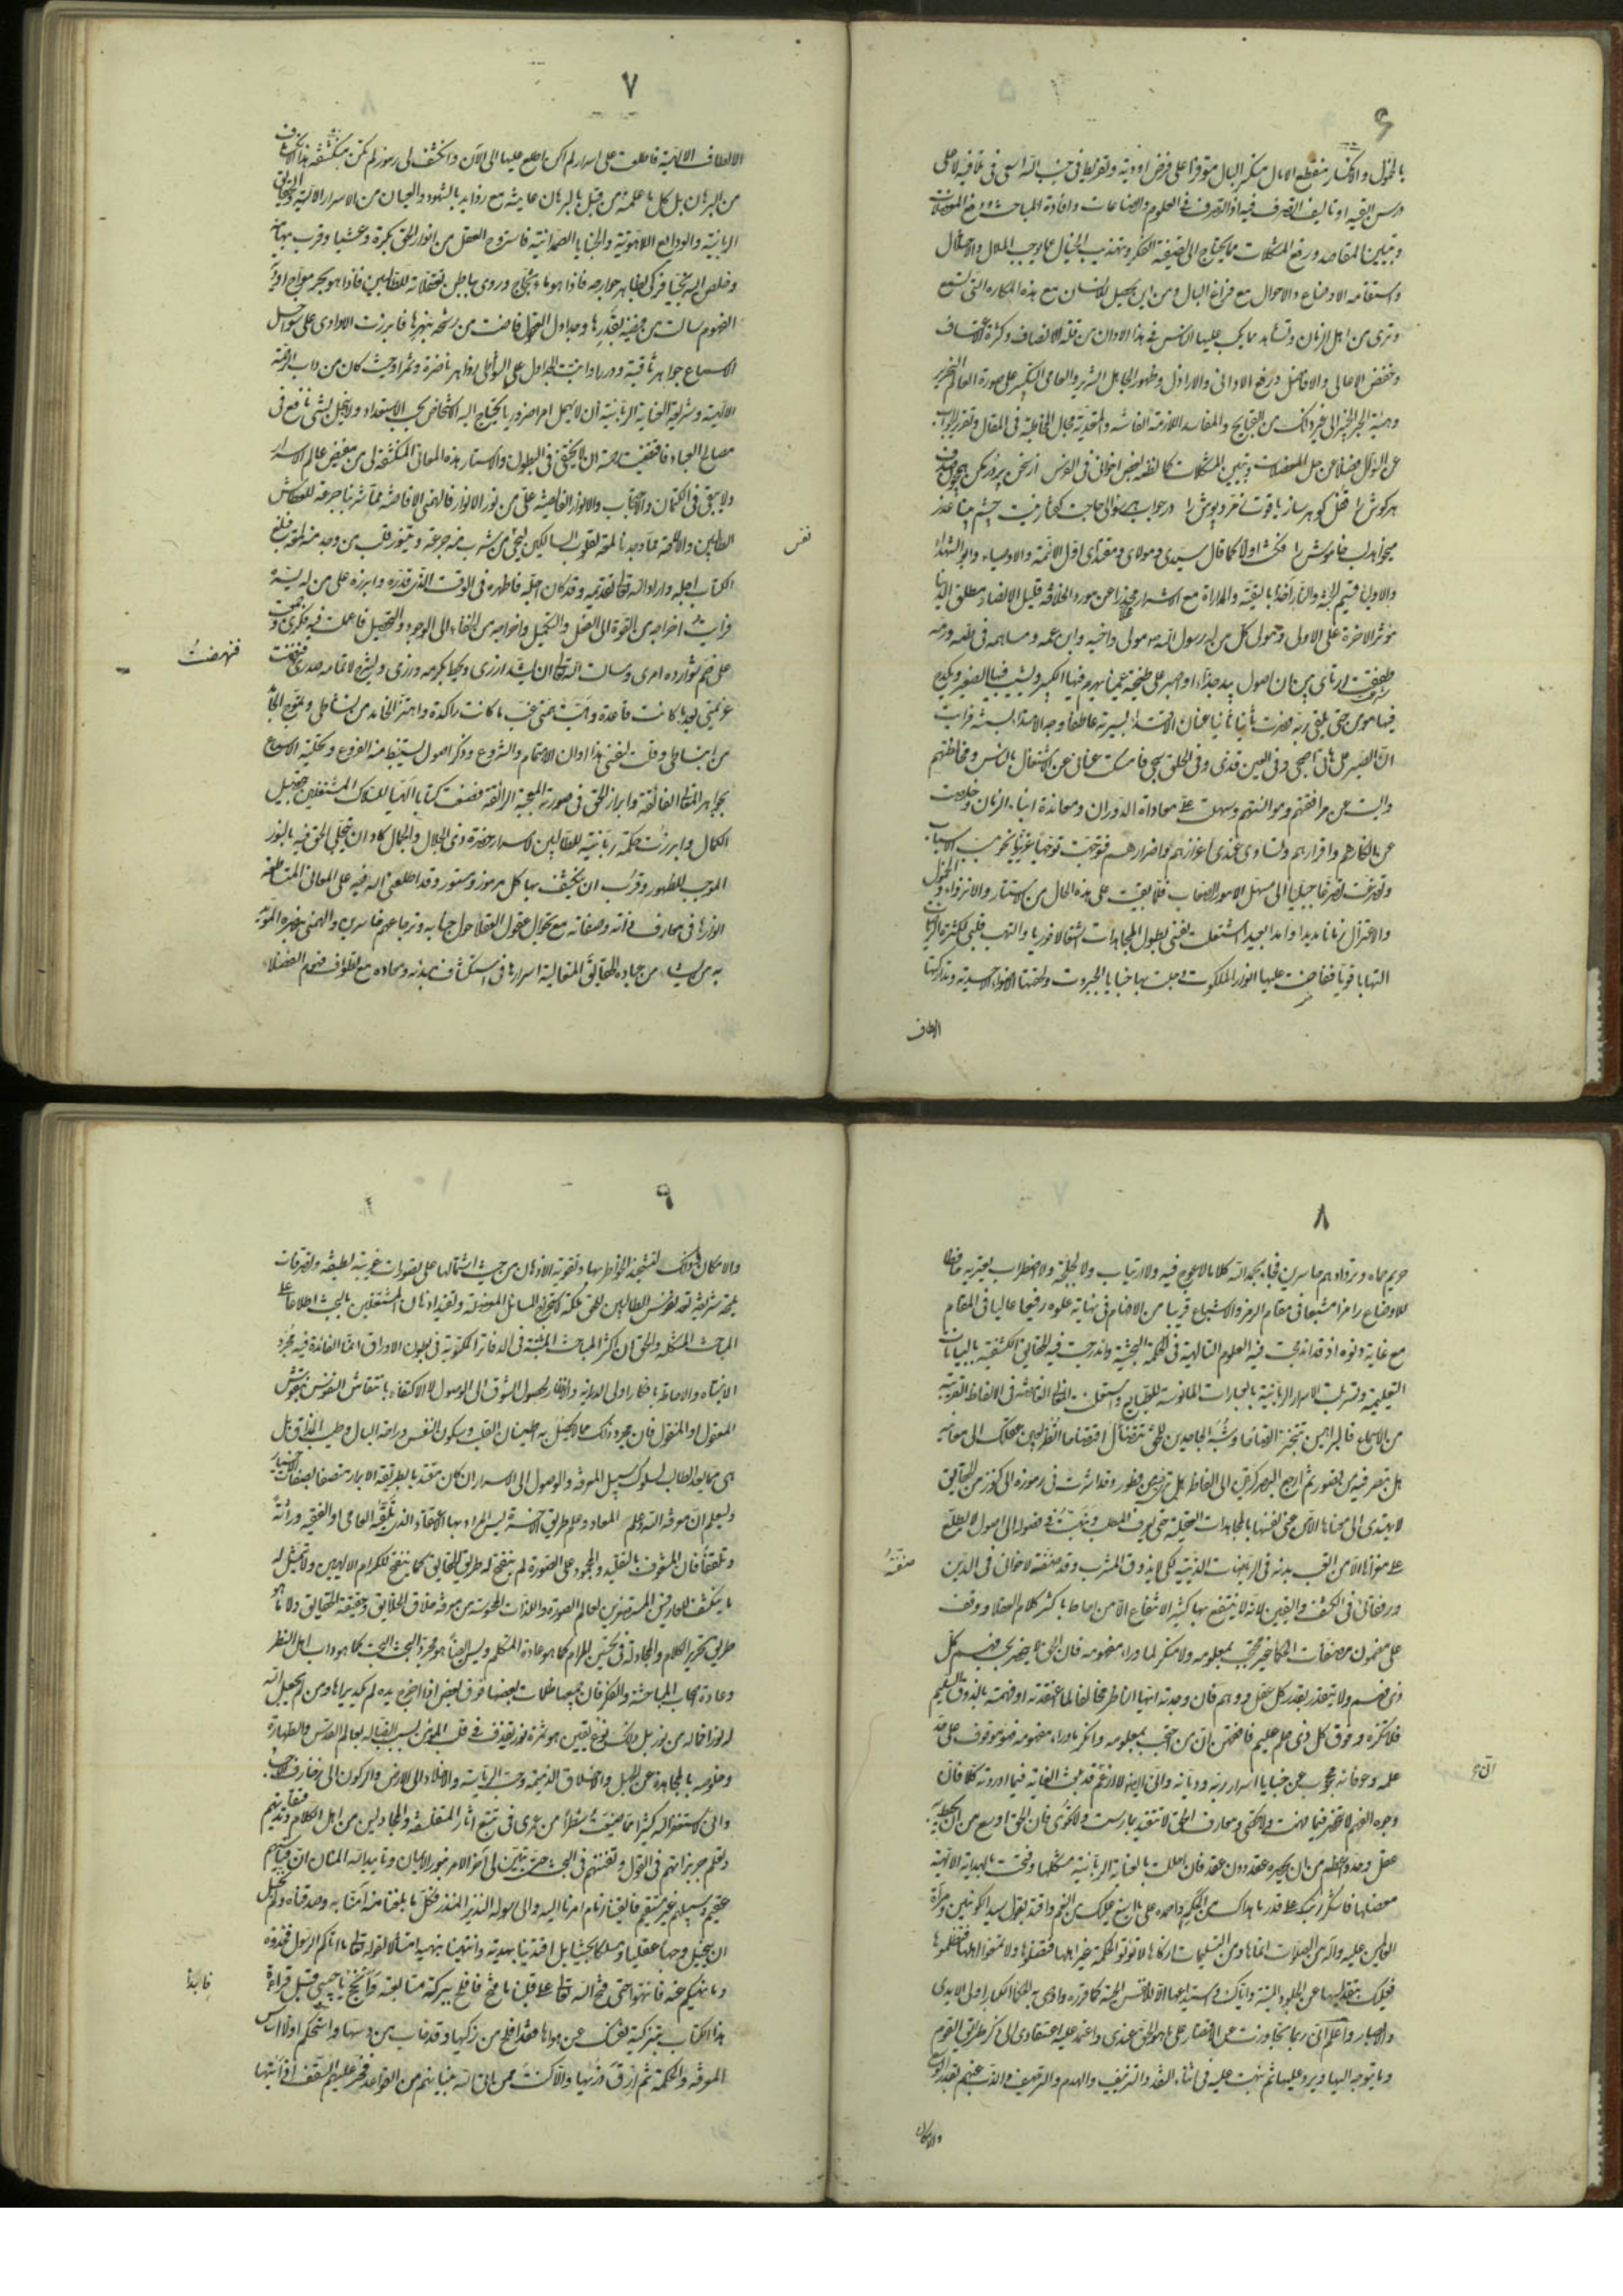 ۶
بالخمول والانكسار منقطع الآمال منكسر البال متوفرا على فرض اؤديه وتفريط فى جنب الله اسعى فى تلافيه لا على
درس القيه او تاليف اتصرف فيه اذ التصرف فى العلوم والصناعات وافادة المباحث ودفع المعضلات
وتبيين المقاصد ورفع المشكلات مما يحتاج الى تصفية الفكر وتهذيب الخيال عما يوجب الملال والاختلال
واستقامة الاوضاع والاحوال مع فراغ البال ومن اين يحصل للانسان مع هذه المكاره التى يسمع
ويرى من اهل الزمان ويشاهد مما يكب عليها الناس فى هذا الاوان من قلة الانصاف وكثرة الاعتساف
وخفض الاعالى والافاضل ورفع الادانى والاراذل وظهور الجاهل الشرير والعامى النكير على صورة العالم النحرير
وهيئة الحبر الخبير الى غير ذلك من القبايح والمفاسد اللازمة الفاشية والمتعدية مجال المخاطبة فى المقال وتقرير الجواب
عن السؤال فضلا عن حل المعضلات وتبيين المشكلات كما نظمه بعض اخوانى فى الفرس از سخن پر در مكن همچون صدف
هر گوش را قفل گوهر ساز ياقوت زمرد پوش را در جواب هر سؤالى حاجت گفتار نيست چشم بينا عذر
ميخواهد لب خاموش را فكنت اولا كما قال سيدى ومولاى ومقتداى اول الائمة والاوصياء وابو الشهداء
والاولياء قسيم الجنة والنار آخذا بالتقية والمداراة مع الاشرار مخلا عن مورد الخلافة قليل الانصار مطلق الدنيا
مؤثر الآخرة على الاولى ومولى كل من له رسول الله مولى واخيه وابن عمه ومساهمه فى طمه ورمه
طفقت ارتاى بين ان اصول بيد جذاء او اصبر على طخية عمياء يهرم فيها الكبير ويشيب فيها الصغير ويكدح
فيها مومن حتى يلقى ربه فصرت ثانيا عنان الاقتداء بسيرته عاطفا وجه الاهتداء بسنته فرايت
ان الصبر على هاتى احجى وفى العين قذى وفى الحلق شجى فامسكت عنانى عن الاشتغال بالناس ومخالطتهم
وايست عن مرافقتهم وموانستهم وسهلت على معاداة الدوران ومعاندة ابناء الزمان وخلصت
عن انكارهم واقرارهم وتساوى عندى اعزازهم واضرارهم فتوجهت توجها غريزيا نحو مسبب الاسباب
وتضرعت تضرعا جبليا الى مسهل الامور الصعاب فلما بقيت على هذه الحال من الاستتار والانزواء والخمول
والاعتزال زمانا مديدا وامدا بعيدا اشتعلت نفسى لطول المجاهدات اشتعالا نوريا والتهب قلبى لكثرة الرياضات
التهابا قويا ففاضت عليها انوار الملكوت وحلت بها خبايا الجبروت ولحقتها الاضواء الاحدية وتداركتها
الالطاف
۷
الالطاف الالهية فاطلعت على اسرار لم اكن اطلع عليها الى الآن وانكشف لى رموز لم تكن منكشفة هذا الانكشاف
من البرهان بل كل ما علمته من قبل بالبرهان عاينته مع زوايد بالشهود والعيان من الاسرار الالهية والحقايق
الربانية والودايع اللاهوتية والخبايا الصمدانية فاستروح العقل من انوار الحق بكرة وعشيا وقرب بها منه
وخلص اليه نجيا فزكى بظاهر جوارحه فاذا هو ماء ثجاج وروى بباطن تعقلاته للطالبين فاذا هو بحر مواج اودية
الفهوم سالت من فيضه بقدرها وجداول العقول فاضت من رشحه بنهرها فابرزت الاوادى على سواحل
الاسماع جواهر ثاقبة ودررا وانبتت الجداول على الشواطى زواهر ناضرة وثمرا وحيث كان من داب الرحمة
الالهية وشريعة العناية الربانية ان لا يهمل امرا ضروريا يحتاج اليه الاشخاص بحسب الاستعداد ولا يبخل بشى نافع فى
مصالح العباد فاقتضت رحمته ان لا يختفى فى البطون والاستتار هذه المعانى المنكشفة لى من مفيض عالم الاسرار
ولا يبقى فى الكتمان والاحتجاب والانوار الفايضة على من نور الانوار فالهمنى الافاضة مما شربنا جرعة للعطاش
الطالبين والالاحة مما وجدنا لمعة لقلوب السالكين ليحيى من شرب منه جرعة ويتنور قلب من وجد منه لمعة فبلغ
الكتاب اجله واراد الله تعالى تقديمه وقد كان اجله فاظهره فى الوقت الذى قدره وابرزه على من له يسره
فرايت اخراجه من القوة الى الفعل والتكميل وابرازه من الخفاء الى الوجود والتحصيل فاعملت فيه فكرى وجمعت
على ضم شوارده امرى وسالت الله تعالى ان يشد ازرى ويحط بكرمه وزرى ويشرح لاتمامه صدرى فنهضت
عزيمتى بعد ما كانت قاعدة وهبت همتى غب ما كانت راكدة واهتز الخامد من نشاطى وتموج الجامد
من انبساطى وقلت لنفسى هذا اوان الاهتمام والشروع وذكر اصول يستنبط منها الفروع وتحلية الاسماع
بجواهر المعانى الفائقة وابراز الحق فى صورته المعجبة الرائقة فصنفت كتابا الهيا للسلاك المشتغلين بتحصيل
الكمال وابرزت حكمة ربانية للطالبين لاسرار حضرة ذى الجلال والجمال كاد ان يتجلى الحق فيه بالنور
الموجب للظهور وقرب ان ينكشف بها كل مرموز ومستور وقد اطلعنى الله فيه على المعانى المتساطعة
انوارها فى معارف ذاته وصفاته مع تجوال عقول العقلاء حول جنابه وترجاعهم حاسرين والهمنى بنصره المؤيد
به من يشاء من عباده الحقايق المتعالية اسرارها فى استكشاف مبدئه ومعاده مع تطواف فهوم الفضلاء
نفس
فنهضت
۸
حريم حماه وتردادهم خاسرين فجاء بحمد الله كلاما لا عوج فيه ولا ارتياب ولا لجلجة ولا اضطراب يعتريه حافظا
للاوضاع رامزا مشبعا فى مقام الرمز والاشباع قريبا من الافهام فى نهاية علوه رفيعا عاليا فى المقام
مع غاية دنوه اذ قد اندمجت فيه العلوم التالهية فى الحكمة البحثية وتدرعت فيه الحقايق الكشفية بالبيانات
التعليمية وتسربلت الاسرار الربانية بالعبارات المانوسة للطبايع واستعملت المعانى الغامضة فى الالفاظ القريبة
من الاسماع فالبراهين تتبختر اتضاحا وشبه الجاحدين للحق تتضئال افتضاحا انظر بعين عقلك الى معانيه
هل تنظر فيه من قصور ثم ارجع البصر كرتين الى الفاظه هل ترى فيه من فطور وقد اشرت فى رموزه الى كنوز من الحقايق
لا يهتدى الى معناها الا من عنى نفسه بالمجاهدات العقلية حتى يعرف المطالب ونبهت فى فصوله الى اصول لا يطلع
على مغزاها الا من اتعب بدنه فى الرياضات الدينية لكيلا يذوق المشرب وقد صنفته لاخوانى فى الدين
ورفقائى فى الكشف واليقين لانه لا ينتفع بها كثير الانتفاع الا من احاط باكثر كلام العقلاء ووقف
على مضمون مصنفات الحكماء غير محتجب بمعلومه ولا منكر لما وراء مفهومه فان الحق لا ينحصر بحسب فهم كل
ذى فهم ولا يتقدر بقدر كل عقل ووهم فان وجدته ايها الناظر مخالفا لما اعتقدته او فهمته بالذوق السليم
فلا تنكره وفوق كل ذى علم عليم فافقهن ان من احتجب بمعلومه وانكر ما وراء مفهومه فهو موقوف على حد
علمه وعرفانه محجوب عن خبايا اسرار ربه وديانه وانى ايضا لا ازعم انى قد بلغت الغاية فيما اوردته كلا فان
وجوه الفهم لا تنحصر فيما فهمت ولا تحصى ومعارف الحق لا تتقيد بما رسمت ولا تحوى فان الحق اوسع من ان يحيط به
عقل وحد واعظم من ان يحصره عقد دون عقد فان احللت بالعناية الربانية مشكلها وفتحت بالهداية الالهية
معضلها فاشكر ربك على قدر ما هداك من الحكم واحمده على ما اسبغ عليك من النعم واقتد بقول سيد الكونين ومرآة
العالمين عليه وآله من الصلوات انماها ومن التسليمات ازكاها لا تؤتوا الحكمة غير اهلها فتضلوها ولا تمنعوا اهلها فتظلموها
فعليك بتقديسها عن الجلود الميتة واياك واستيداعها الا للانفس الحية كما قرره واوصى به الحكماء الكبار اولى الايدى
والابصار واعلم انى ربما تجاوزت عن الاقتصار على ما هو الحق عندى واعتمد عليه اعتقادى الى ذكر طرايق القوم
وما يتوجه اليها ويرد عليها ثم نبهت عليه فى اثناء النقد والتزييف والهدم والترصيف والذب عنهم بقدر الوسع
والامكان
صنفته
انى
۹
والامكان وذلك لتشحيذ الخواطر بها وتقوية الاذهان من حيث اشتمالها على تصورات غريبة لطيفة وتصرفات
مليحة شريفة تعد نفوس الطالبين للحق ملكة لاستخراج المسائل المعضلة وتفيد اذهان المشتغلين بالبحث اطلاعا على
المباحث المشكلة والحق ان اكثر المباحث المثبتة فى الدفاتر المكتوبة فى بطون الاوراق انما الفائدة فيه مجرد
الانتباه والاحاطة بافكار اولى الدراية والانظار لحصول الشوق الى الوصول لا الاكتفاء بانتقاش النفوس بنقوش
المعقول او المنقول فان مجرد ذلك مما لا يحصل به اطمينان القلب وسكون النفس وراحة البال وطيب المذاق بل
هى مما يعد الطالب لسلوك سبيل المعرفة والوصول الى الاسرار ان كان مقتديا بطريقة الابرار متصفا بصفات الاخيار
وليعلم ان معرفة الله وعلم المعاد وعلم طريق الآخرة ليس المراد بها الاعتقاد الذى تلقاه العامى او الفقيه وراثة
وتلقفا فان المشغوف بالتقليد والجمود على الصورة لم ينفتح له طريق الحقايق كما ينفتح للكرام الالهيين ولا يتمثل له
ما ينكشف للعارفين المستصغرين لعالم الصورة واللذات المحسوسة من معرفة خلاق الخلايق وحقيقة الحقايق ولا ما هو
طريق تحرير الكلام والمجادلة فى تحسين المرام كما هو عادة المتكلم وليس ايضا هو مجرد البحث البحت كما هو داب اهل النظر
وعادة اصحاب المباحثة والفكر فان جميعها ظلمات بعضها فوق بعض اذا اخرج يده لم يكد يراها ومن لم يجعل الله
له نورا فماله من نور بل ذلك نوع يقين هو ثمرة نور يقذف فى قلب المومن بسبب اتصاله بعالم القدس والطهارة
وخلوصه بالمجاهدة عن الجهل والاخلاق الذميمة وحب الرياسة والاخلاد الى الارض والركون الى زخارف الاجساد
وانى لاستغفر الله كثيرا مما ضيعت شطرا من عمرى فى تتبع آراء المتفلسفة والمجادلين من اهل الكلام وتدقيقاتهم
وتعلم جربزتهم فى القول وتفننهم فى البحث حتى تبين لى آخر الامر بنور الايمان وتاييد الله المنان ان قياسهم
عقيم وسبيلهم غير مستقيم فالقينا زمام امرنا اليه والى رسوله النذير المنذر فكل ما بلغنا منه آمنا به وصدقناه ولم نحتل
ان نتخيل وجها عقليا ومسلكا بحثيا بل اقتدينا بهديه وانتهينا بنهيه امتثالا لقوله تعالى ما اتاكم الرسول فخذوه
وما نهيكم عنه فانتهوا حتى فتح الله تعالى على قلبنا ما فتح فافلح ببركة متابعته وانجح يا حبيبى قبل قراءة
هذا الكتاب بتزكية نفسك عن هواها فقد افلح من زكيها وقد خاب من دسيها واستحكم اولا اساس
المعرفة والحكمة ثم ارق ذراها والا كنت ممن اتى الله بنيانهم من القواعد فخر عليهم السقف اذ اتيها
فابدا